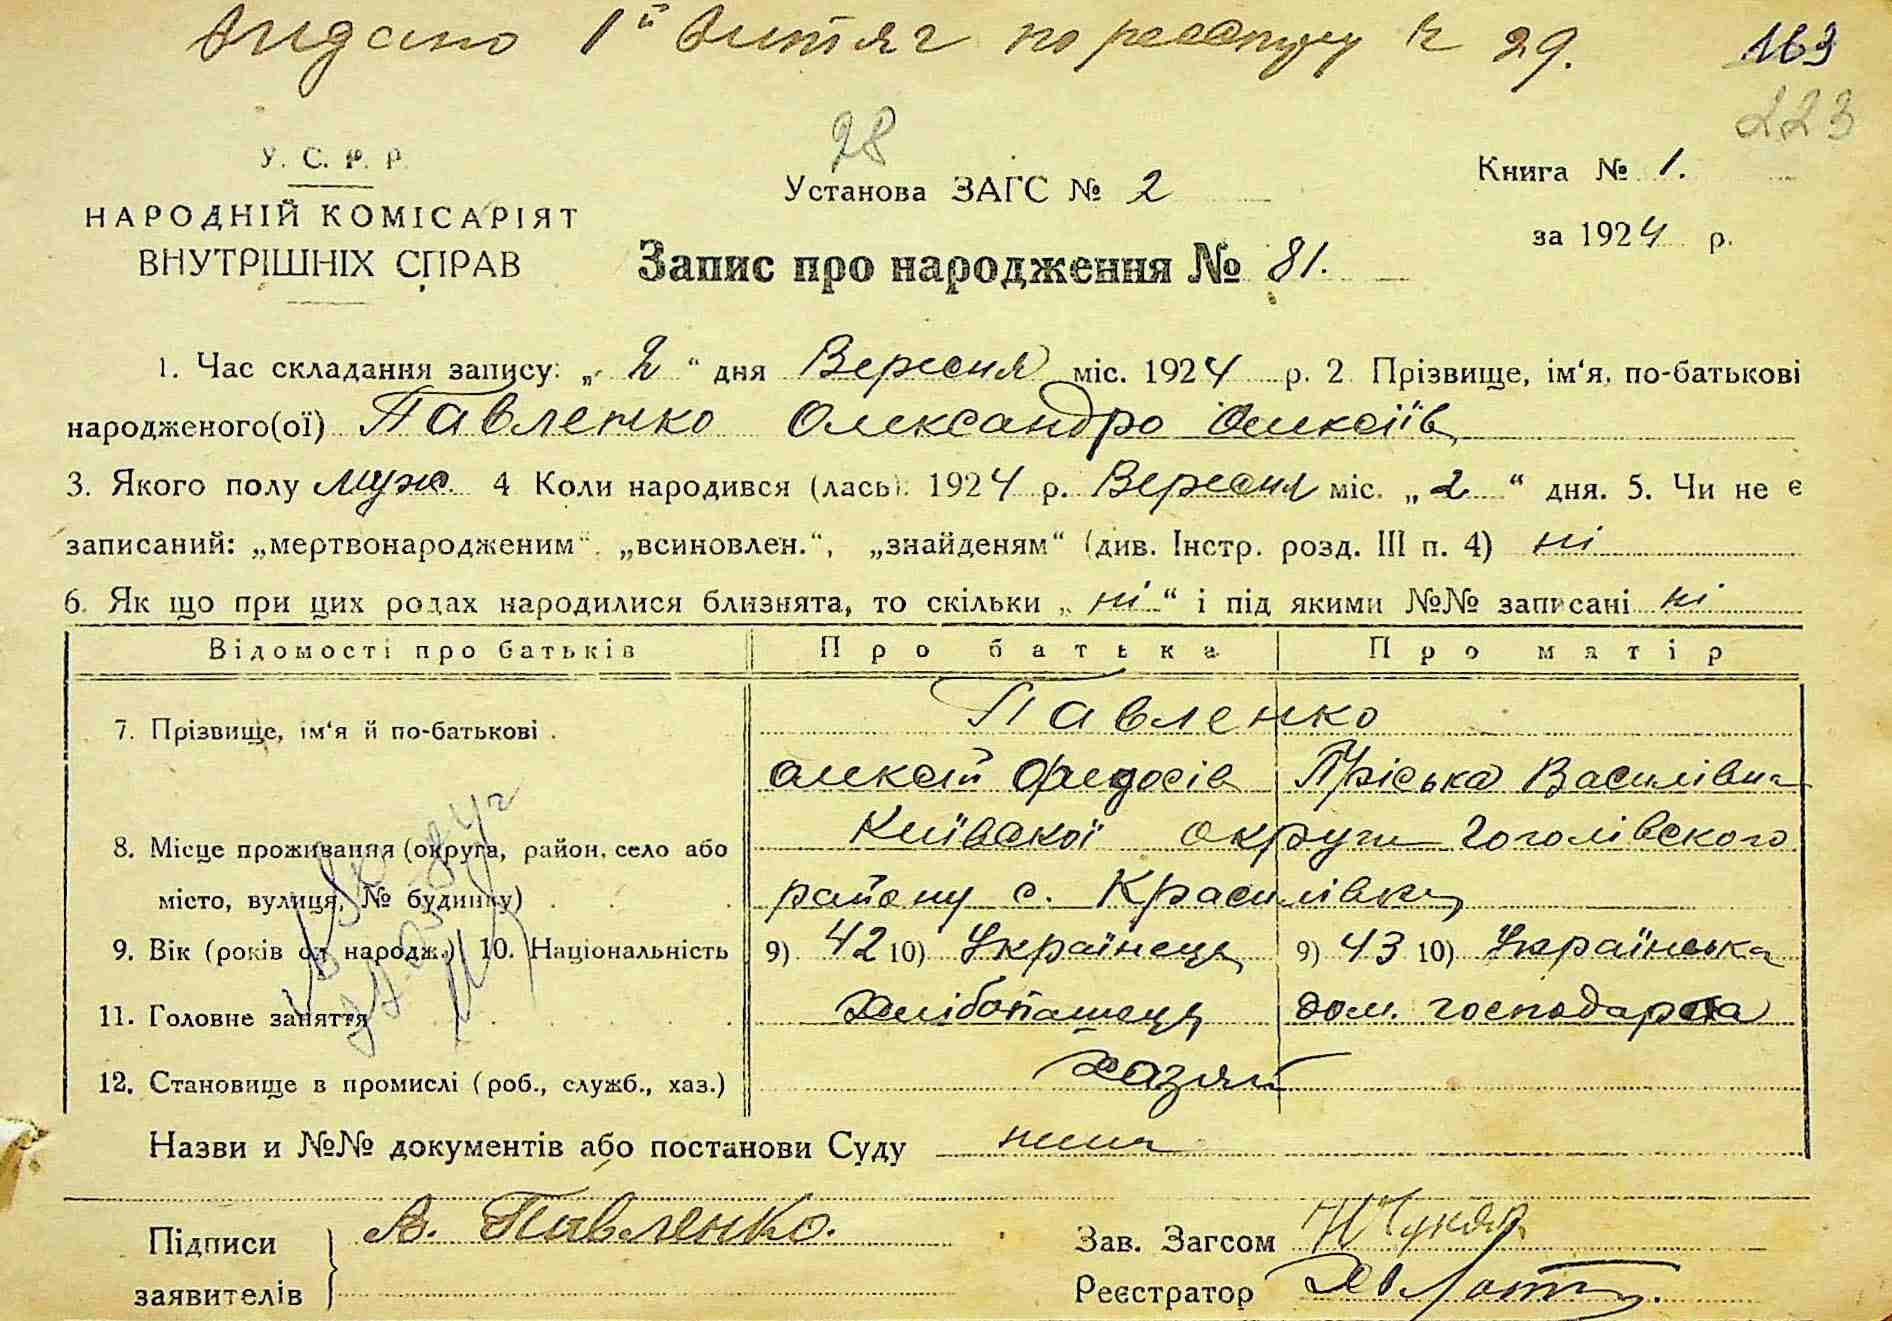 Видано 1й витяг по реєстру № 29.
163
223
У. С. Р. Р.
НАРОДНІЙ КОМІСАРІЯТ
ВНУТРІШНІХ СПРАВ
28
Установа ЗАГС № 2
Запис про народження № 81.
Книга № 1.
за 1924 р.
1. Час складання запису: „ 2 “ дня Вересня міс. 1924 р. 2 Прізвище, ім‘я, по-батькові
народженого(ої) Павленко Олександро Олексіїв
3. Якого полу муж. 4 Коли народився (лась): 1924 р. Вересня міс. „ 2 “ дня. 5. Чи не є
записаний: „мертвонародженим“, „всиновлен.“, „знайденям“ (див. Інстр. розд. III п. 4) ні
6. Як що при цих родах народилися близнята, то скільки „ ні “ і під якими №№ записані ні
Відомості про батьків Про батька Про матір
7. Прізвище, ім‘я й по-батькові . Павленко
Олексій Федосів Пріська Василівна
8. Місце проживання (округа, район, село або Київської округи Гоголівского
місто, вулиця, № будинку) . району с. Красилівка
9. Вік (років од народж.) 10. Національність 9) 42 10) Українець 9) 43 10) Українська
11. Головне заняття Хлібопашець дом. господарка
12. Становище в промислі (роб., служб., хаз.) хазяй
Назви и №№ документів або постанови Суду нима
Підписи
заявителів
А. Павленко.
Зав. Загсом
Реєстратор